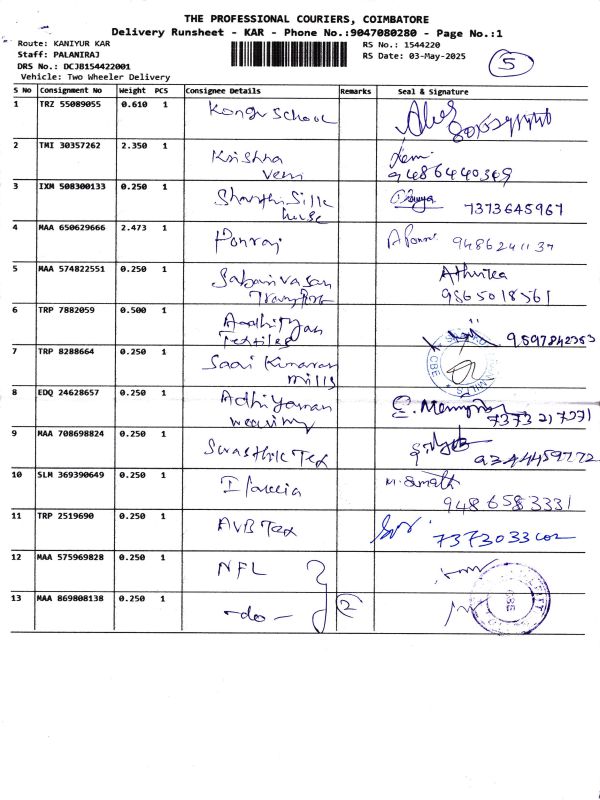 THE PROFESSIONAL COURIERS, COIMBATORE
Delivery Runsheet - KAR - Phone No.:9047080280 - Page No.:1
Route: KANIYUR KAR
Staff: PALANIRAJ
DRS No.: DCJB154422001
Vehicle: Two Wheeler Delivery
RS No.: 1544220
RS Date: 03-May-2025
5
S No Consignment No Weight PCS Consignee Details Remarks Seal & Signature
1 TRZ 55089055 0.610 1 Kongu School
2 TMI 30357262 2.350 1 Krishna
Veni
9486440369
3 IXM 508300133 0.250 1 Shanthi Silk
house
7373645967
4 MAA 650629666 2.473 1 Ponraj A Ponraj 9486241137
5 MAA 574822551 0.250 1 Sabarivasan
Transport
9865018561
6 TRP 7882059 0.500 1 Aadhityan
textiles
9597842353
7 TRP 8288664 0.250 1 Saai Kumaran
mills
CBE
8 EDQ 24628657 0.250 1 Adhiyaman
weaving
7373217071
9 MAA 708698824 0.250 1 Swasthik Tex 9344459772
10 SLM 369390649 0.250 1 M. Sumathi
9486583331
11 TRP 2519690 0.250 1 AVB Tex 7373033602
12 MAA 575969828 0.250 1 NFL
13 MAA 869808138 0.250 1 -do- 2
CBE